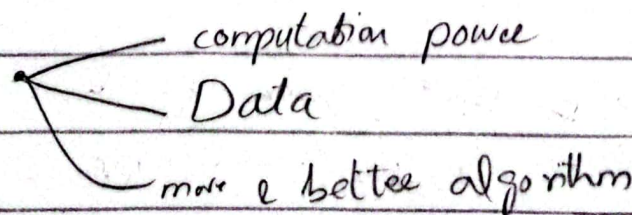 computation power
Data
more & better algorithm